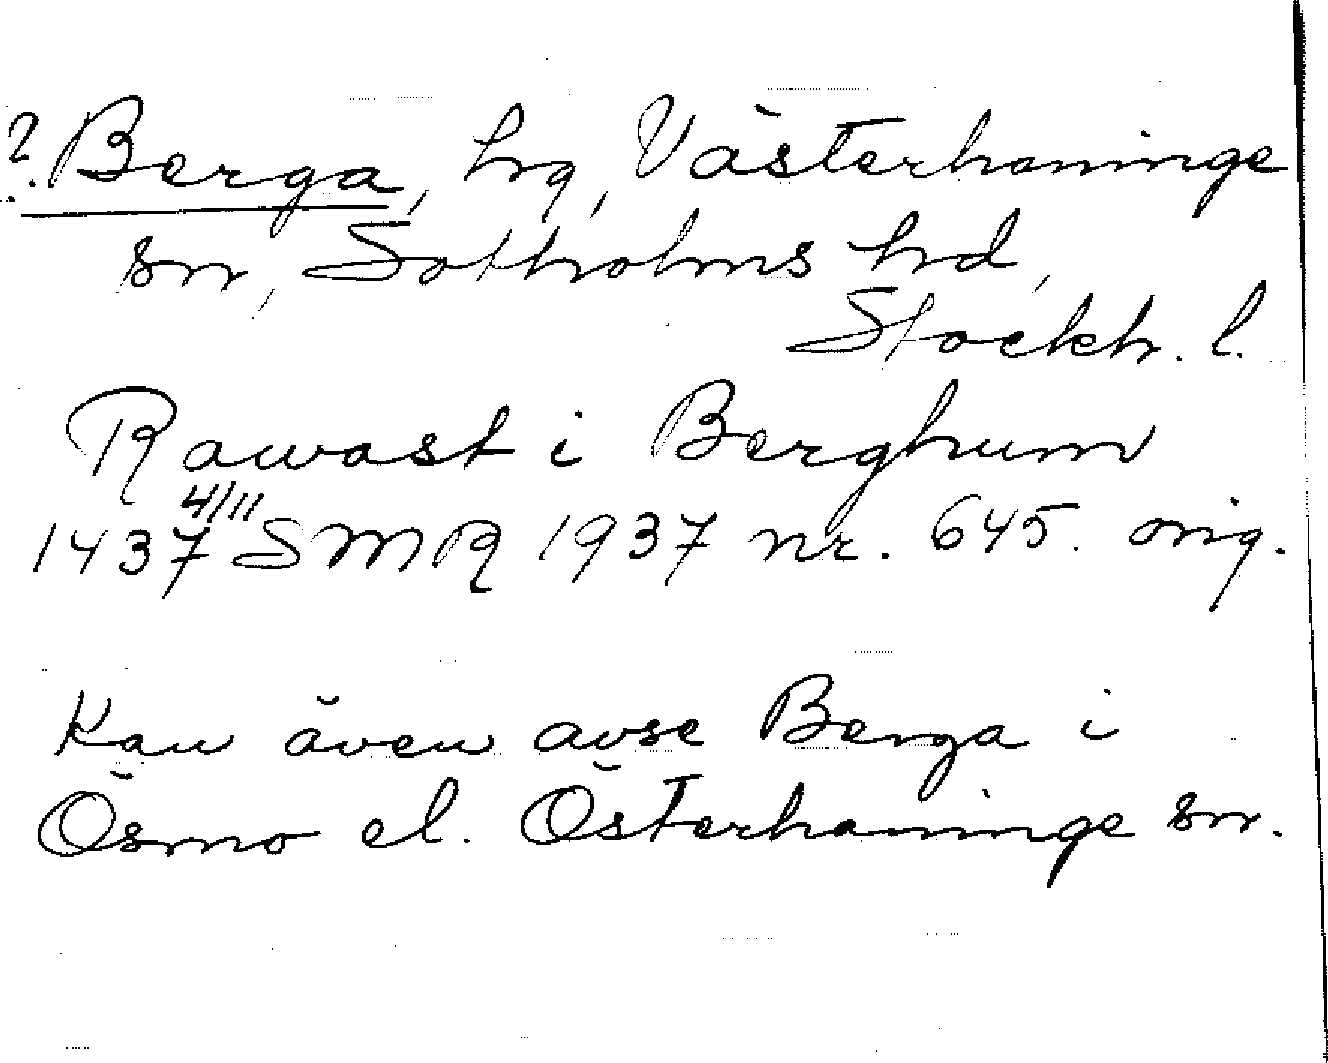 ?. Berga, hg, Västerhaninge
sn, Sotholms hd,
Stockh. l.
Rawast i Berghum
1437 4/11 SMR 1937 nr. 645. orig.
Kan även avse Berga i
Ösmo el. Österhaninge sn.